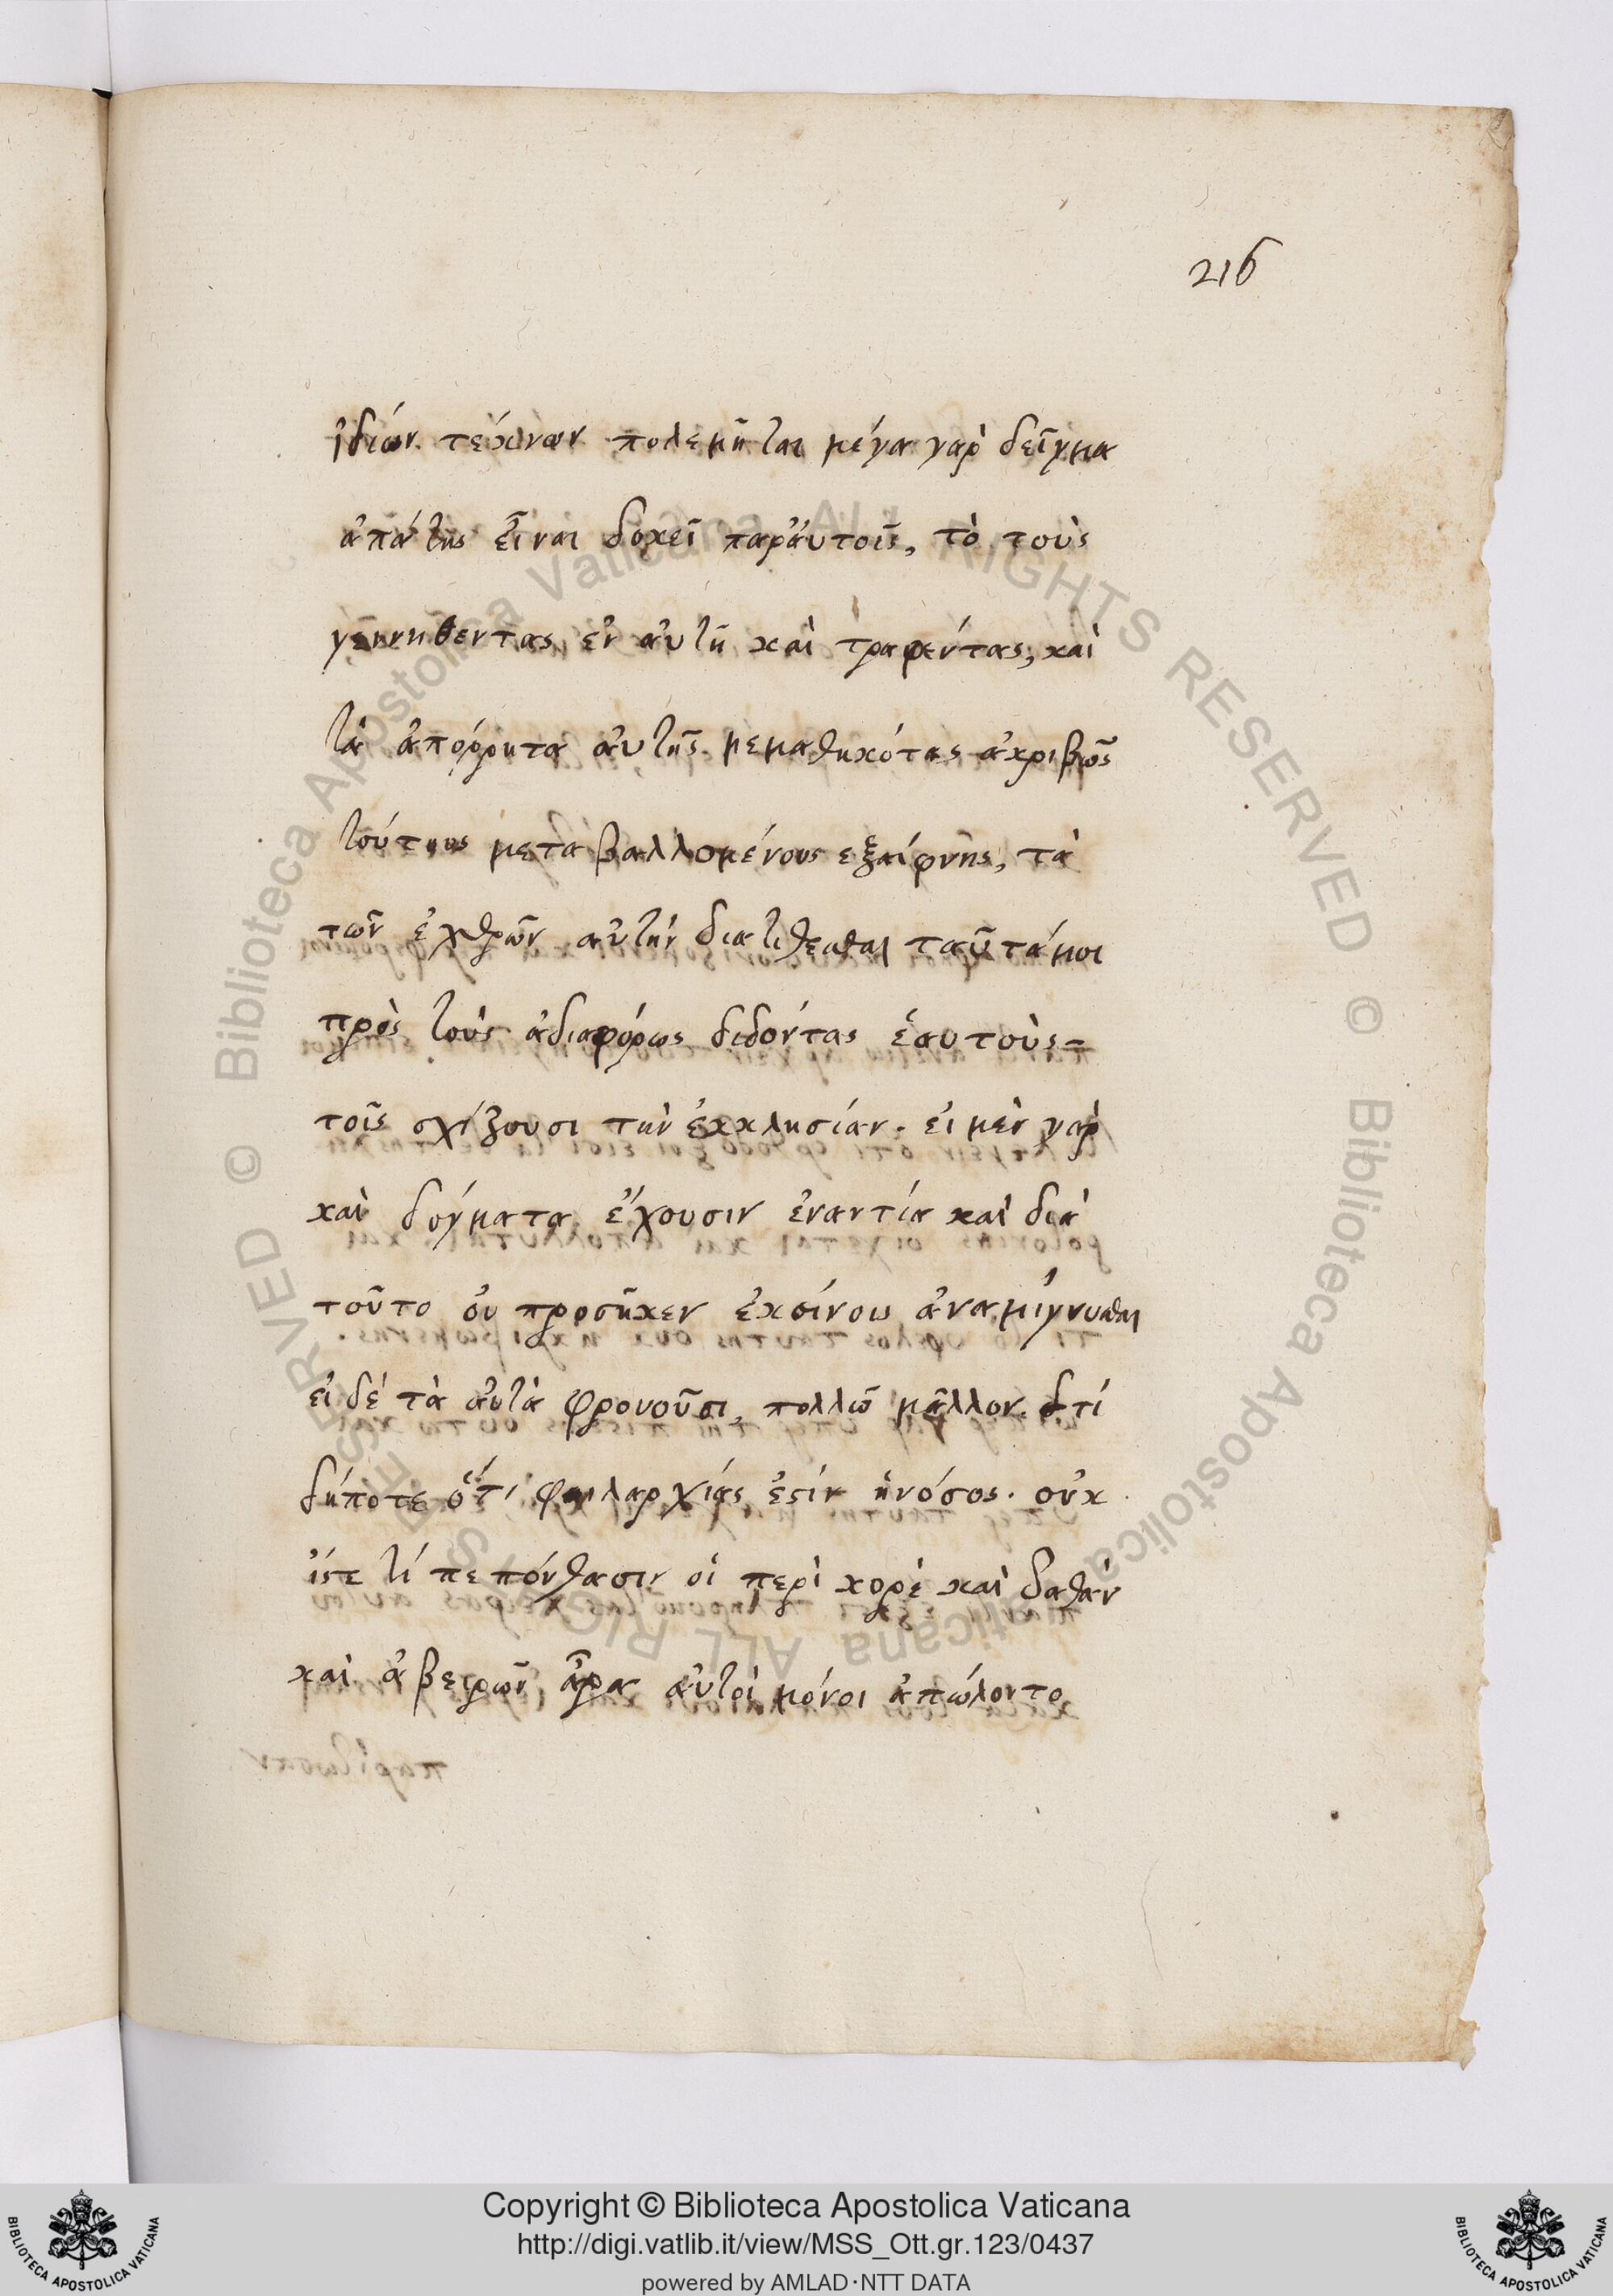 216
ἰδίων τέκνων πολεμῆται μέγα γαρ δεῖγμα
ἀπάτης εἶναι δοκεῖ παράυτοῖς, τὸ τοὺς
γεννηθεντας ἐν ἀυτῆ καὶ τραφέντας, καὶ
τὰ ἀπόρρητα ἀυτῆς μεμαθηκότας ἀκριβῶς
τούτους μεταβαλλομένους εξαίφνης, τὰ
τῶν ἐχθρῶν αὐτὴν διατίθεσθαι ταῦτά μοι
πρὸς τοὺς ἀδιαφόρως διδόντας ἑαυτοὺς
τοῖς σχίζουσι τὴν ἐκκλησίαν. εἰ μὲν γαρ
καὶ δόγματα ἔχουσιν ἐναντία καὶ διὰ
τοῦτο οὐ προσῆκεν ἐκείνοις ἀναμίγνυσθαι
εἰ δὲ τὰ ἀυτὰ φρονοῦσι, πολλῶ μᾶλλον. δτί
δήποτε ὅτι φιλαρχίας ἐστὶν ἡ νόσος. οὐκ
ἴστε τί πεπόνθασιν οἱ περὶ κορὲ καὶ δαθὰν
καὶ ἀβειρῶν ἆρα ἀυτοὶ μόνοι ἀπώλοντο
Copyright © Biblioteca Apostolica Vaticana
http://digi.vatlib.it/view/MSS_Ott.gr.123/0437
powered by AMLAD·NTT DATA
BIBLIOTECA APOSTOLICA VATICANA
BIBLIOTECA APOSTOLICA VATICANA
© Biblioteca Apostolica Vaticana ALL RIGHTS RESERVED
© Biblioteca Apostolica Vaticana ALL RIGHTS RESERVED